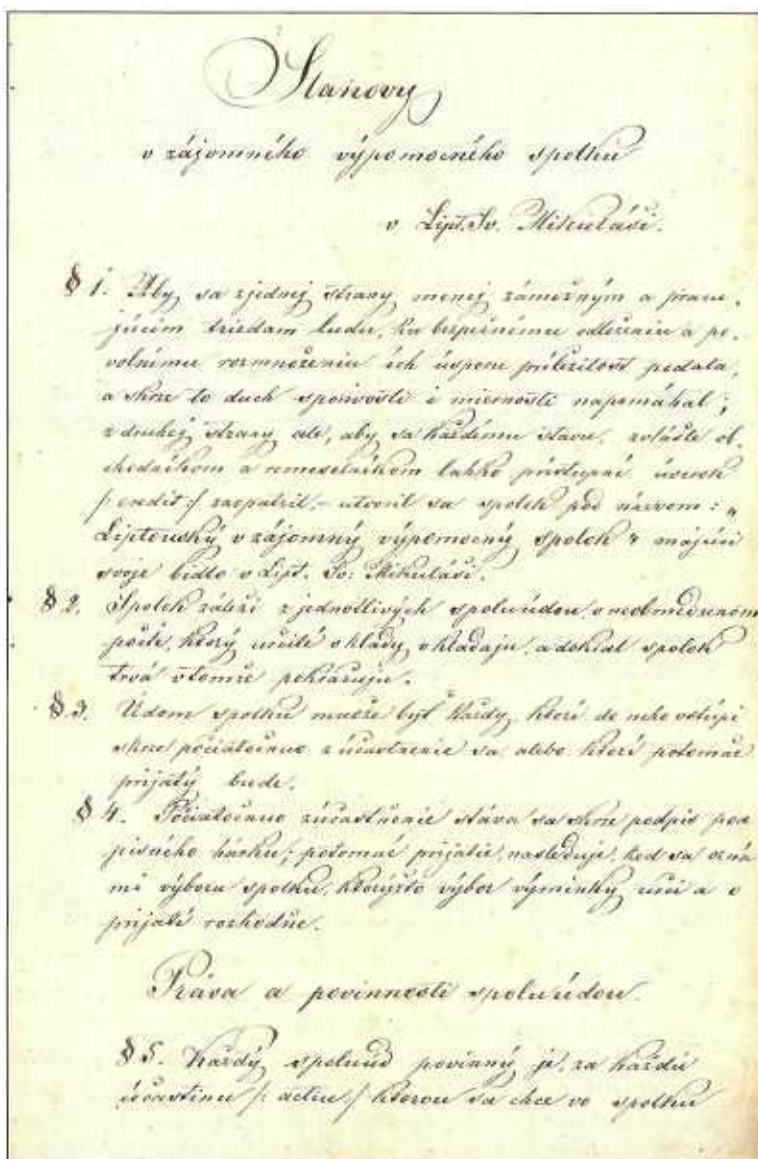 Stanovy
v zájomného výpomocného spolku
v Lipt. Sv. Mikuláši.
§ 1. Aby sa zjednej strany menej zámožným a pracu-
júcim triedam ludu, ku bezpečnému odloženiu a po-
volnému rozmnoženiu ích úspor príležitosť podala,
a skrze to duch sporivosti i miernosti napomáhal;
z druhej strany ale, aby sa každému stavu, zvlášte ob-
chodníkom a remeselníkom lahko prístupný úverok
/: credit :/ zaopatril, – utvoril sa spolok pod názvom: „
Liptovský v zájomný výpomocný spolok“ majúci
svoje bidlo v Lipt. Sv: Mikuláši.
§ 2. Spolok záleží z jednotlivých spoluúdov, v neobmedzenom
počte, ktorý určité vklady vkladajú, a dokial spolok
trvá vtomže pokračujú.
§ 3. Údom spolku môže byť každý, ktorí do neho vstúpi
skrze počiatočnuo zúčastnenie sa, alebo ktorí potomne
prijatý bude.
§ 4. Počiatočnuo zúčastnenie stáva sa skrze podpis pod-
pisného hárku; potomné prijatie nasleduje, ked sa ozná-
mi výboru spolku, ktorýžto výbor výminky určí a o
prijatí rozhodne.
Práva a povinnosti spoluúdov.
§ 5. Každý spoluúd povinný je, za každú
účastinu /: actiu :/ ktorou sa chce vo spolku